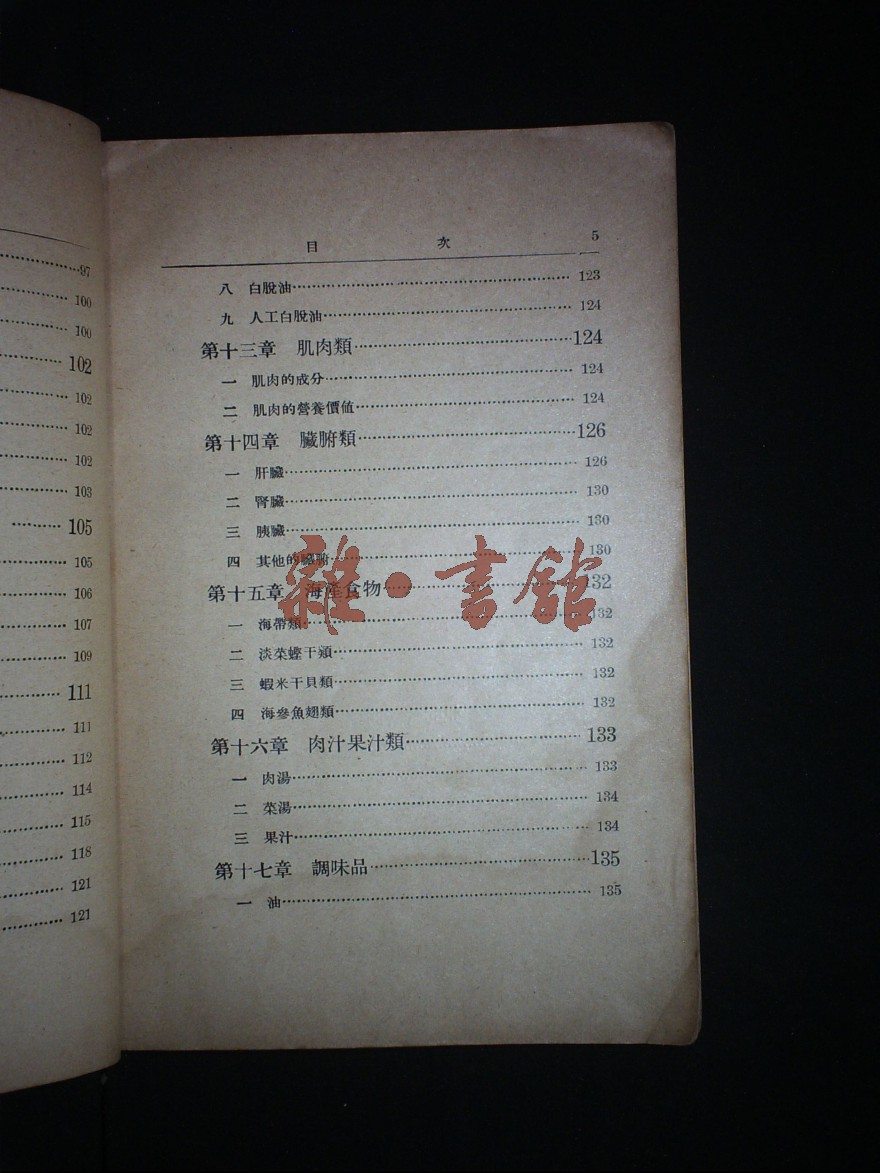 97
100
100
102
102
102
102
103
105
105
106
107
109
111
111
112
114
115
118
121
121
目 次 5
八 白脫油 123
九 人工白脫油 124
第十三章 肌肉類 124
一 肌肉的成分 124
二 肌肉的營養價值 124
第十四章 臟腑類 126
一 肝臟 126
二 腎臟 130
三 胰臟 130
四 其他的臟腑 130
第十五章 海產食物 132
一 海帶類 132
二 淡菜蟶干類 132
三 蝦米干貝類 132
四 海參魚翅類 132
第十六章 肉汁果汁類 133
一 肉湯 133
二 菜湯 134
三 果汁 134
第十七章 調味品 135
一 油 135
雜·書館